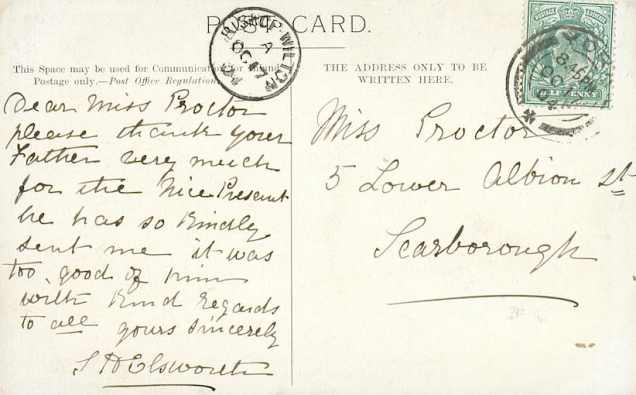 POST CARD.
This Space may be used for Communication for Inland
Postage only.—Post Office Regulation.
THE ADDRESS ONLY TO BE
WRITTEN HERE.
BISHOP WILTON
A
OC 17
Dear Miss Proctor
please thank your
Father very much
for the Nice Present
he has so Kindly
sent me it was
too good of him
with Kind Regards
to all yours sincerely
S H Elsworth
POSTAGE & REVENUE
HALFPENNY
YORK
8.45 PM
OC
Miss Proctor
5 Lower Albion st
Scarborough